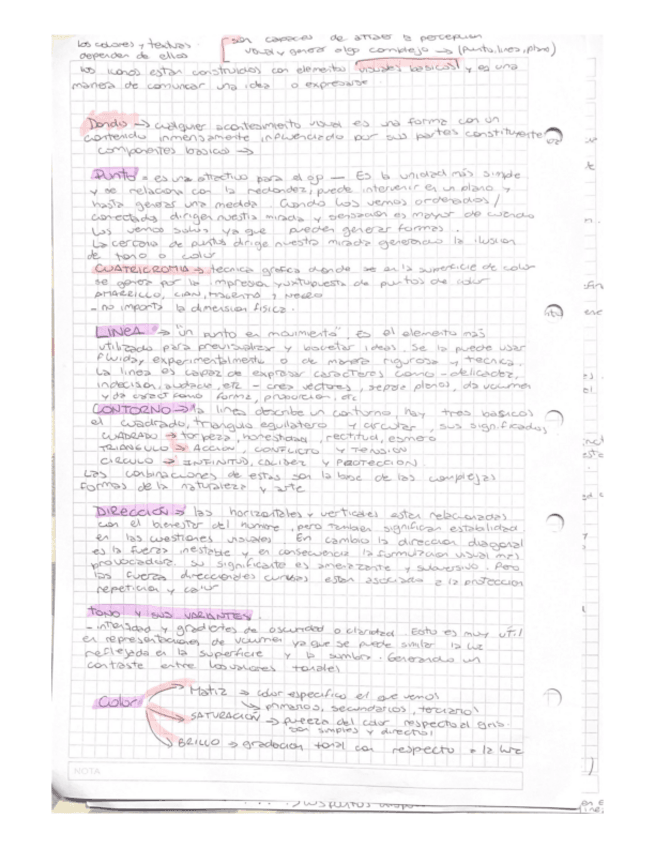 los colores y texturas son capaces de atraer la percepcion
dependen de ellos visual y generar algo complejo → (punto, linea, plano)
los iconos estan construidos con elementos visuales basicos y es una
manera de comunicar una idea o expresarse
Dondis → cualquier acontecimiento visual es una forma con un
contenido inmensamente influenciado por sus partes constituyentes
componentes basicos →
Punto = es una atractivo para el ojo — Es la unidad más simple
y se relaciona con la redondez, puede intervenir en un plano y
hasta generar una medida. Cuando los vemos ordenados/
conectados dirigen nuestra mirada y sensacion es mayor de cuando
los vemos solos ya que pueden generar formas.
La cercania de puntos dirige nuestra mirada generando la ilusion
de tono o color
CUATRICROMIA → tecnica grafica donde se en la superficie de color
se genera por la impresion yuxtapuesta de puntos de color
AMARILLO, CIAN, MAGENTA y NEGRO
- no importa la dimension fisica.
LINEA → "un punto en movimiento". Es el elemento mas
utilizado para previsualizar y bocetar ideas. Se la puede usar
fluida, experimentalmente o de manera rigurosa y tecnica.
La linea es capaz de expresar caracteres como - delicadez,
indecision, audacia, etc - crea vectores, separa planos, da volumen
y da caract como forma, proporcion, etc
CONTORNO → la linea describe un contorno, hay tres basicos
el cuadrado, triangulo equilatero y circular, sus significados
CUADRADO → torpeza, honestidad, rectitud, esmero
TRIANGULO → ACCION, CONFLICTO Y TENSION
CIRCULO → INFINITUD, CALIDEZ y PROTECCION.
Las combinaciones de estas son la base de las complejas
formas de la naturaleza y arte
DIRECCIÓN → las horizontales y verticales estan relacionadas
con el bienestar del hombre, pero tambien significan estabilidad
en las cuestiones visuales. En cambio la direccion diagonal
es la fuerza inestable y en consecuencia la formulacion visual mas
provocadora. su significante es amenazante y subversivo. Pero
las fuerza direccionales curvas estan asociadas a la proteccion
repeticion y calor
TONO y SUS VARIANTES
- intensidad y gradientes de oscuridad o claridad. Esto es muy util
en representaciones de volumen ya que se puede similar la luz
reflejada en la superficie y la sombra. Generando un
contraste entre los valores tonales
Color → Matiz → color especifico el que vemos
→ primarios, secundarios, terciarios
→ SATURACIÓN → pureza del color respecto al gris.
son simples y directos
→ BRILLO → gradacion tonal con respecto a la luz
NOTA